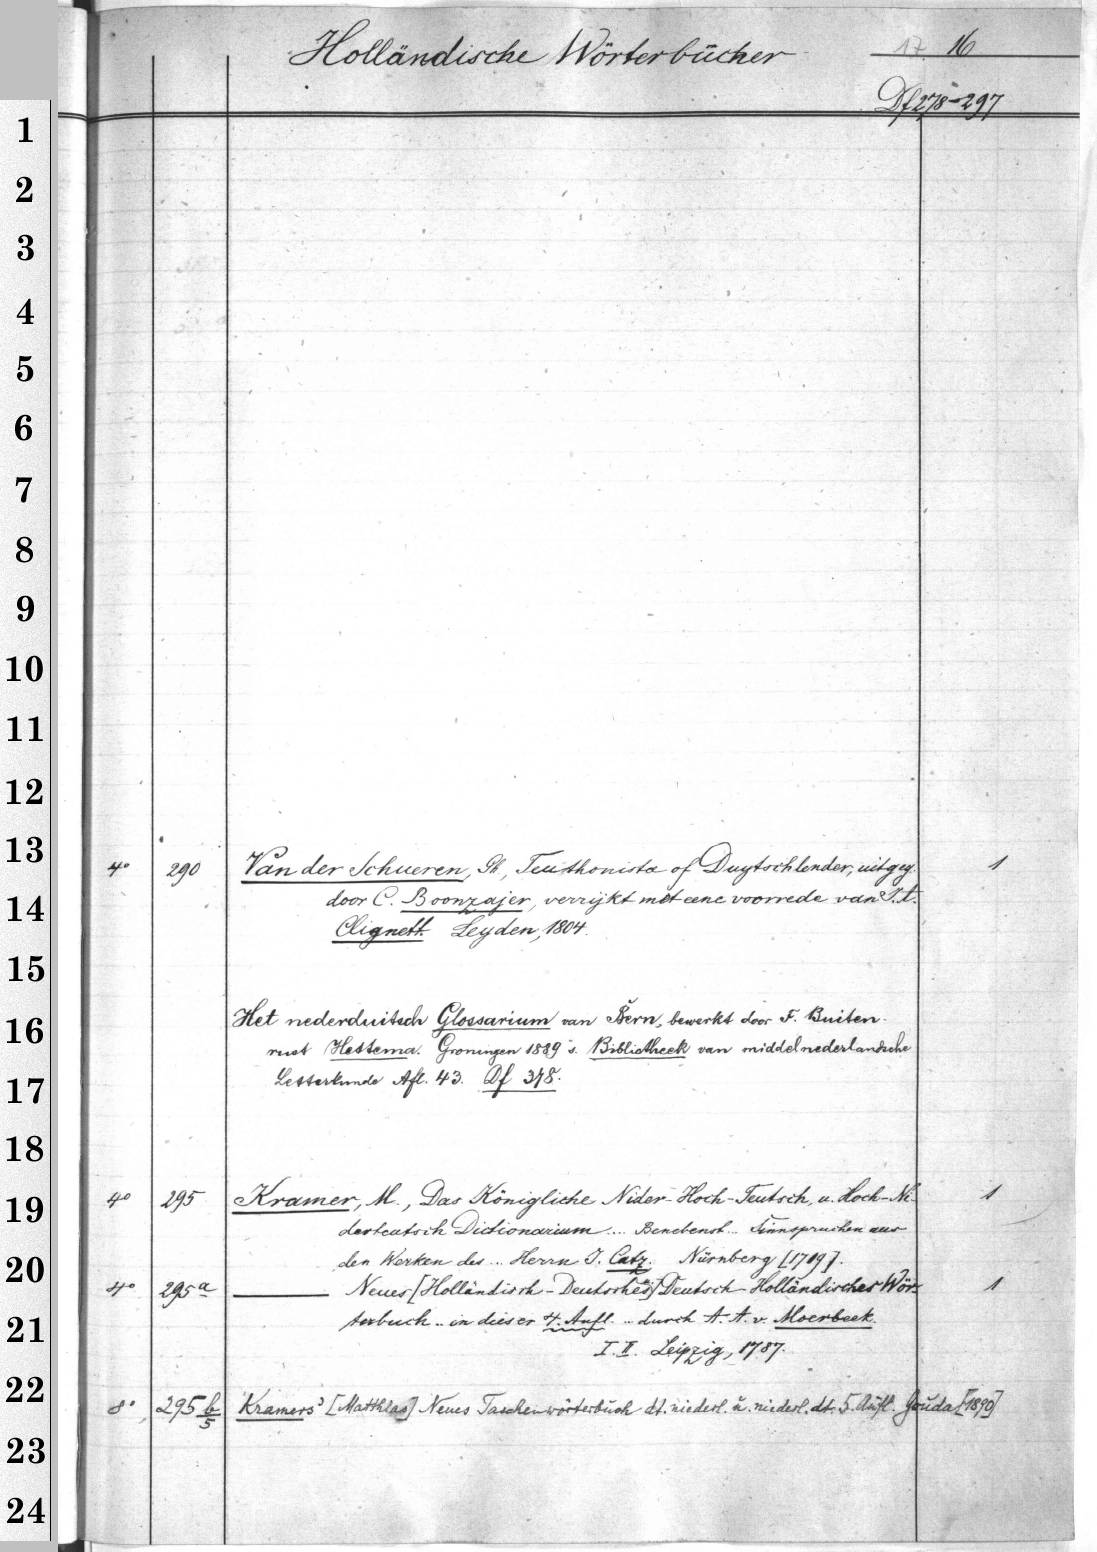 Holländische Wörterbücher 17 16
Df 278-297
1
2
3
4
5
6
7
8
9
10
11
12
13
4° 290 Van der Schueren, Gh, Teuthonista of Duytschlender, uitgeg. 1
14
door C. Boonzajer, verrijkt met eene voorrede van J. A.
Clignett. Leyden, 1804.
15
16
Het nederduitsch Glossarium van Bern, bewerkt door F. Buiten-
rust Hettema. Groningen 1889 s. Bibliotheek van middelnederlandsche
17
Letterkunde Afl. 43. Df 378.
18
19
4° 295 Kramer, M., Das Königliche Nider-Hoch-Teutsch, u. Hoch-Ni- 1
derteutsch Dictionarium... Benebenst... Sinnspruchen aus
20
den Werken des... Herrn J. Catz. Nürnberg [1719].
4° 295a ——— Neues [Holländisch-Deutsches] Deutsch-Holländisches Wör- 1
21
terbuch.. in dieser 4. Aufl. .. durch A. A. v. Moerbeek.
I. II. Leipzig, 1787.
22
8° 295 b/5 Kramers' [Matthias] Neues Taschenwörterbuch dt. niederl. u. niederl. dt. 5. Aufl. Gouda [1890]
23
24